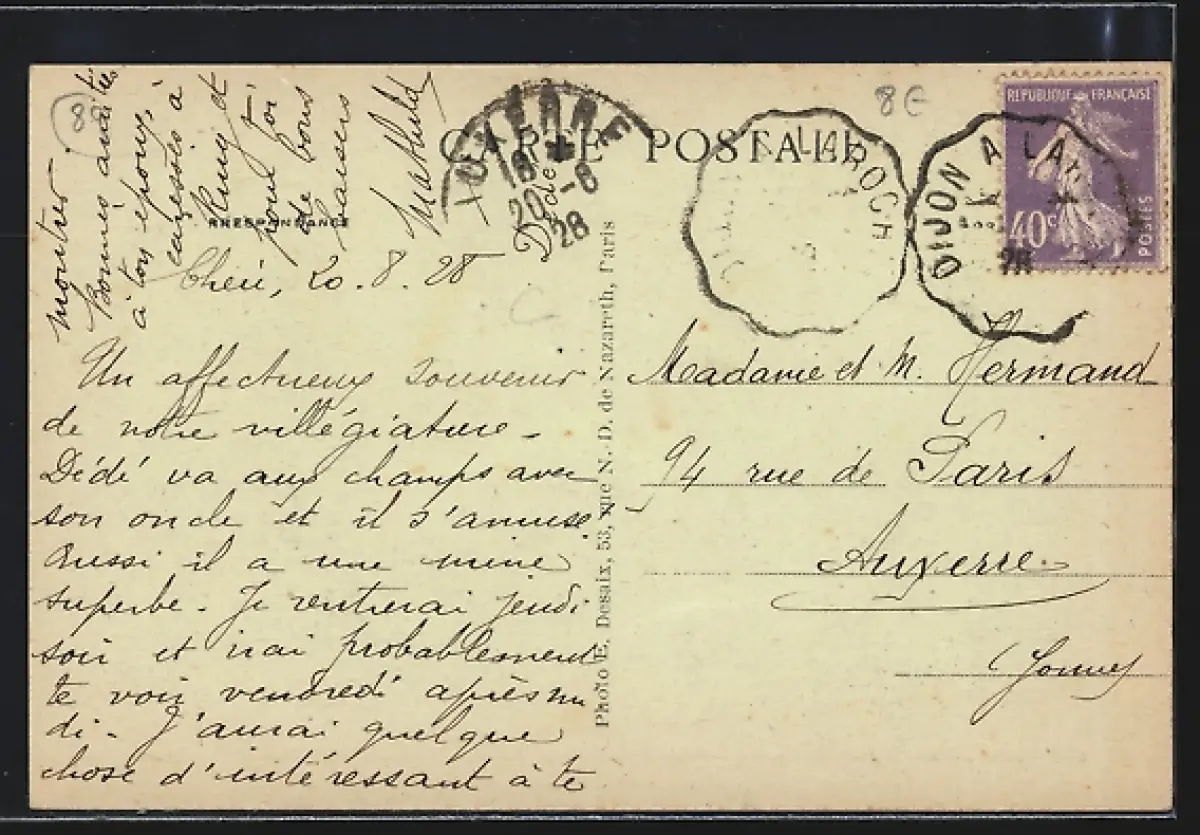 CARTE POSTALE
RRESPONDANCE
8€
REPUBLIQUE FRANÇAISE
40c
POSTES
DIJON A LA
28
LAROCH
AUXERRE
18
20 -8
28
20.8.28
Un affectueux souvenir
de notre villégiature.
Dédé va aux champs avec
son oncle et il s'amuse.
Aussi il a une mine
superbe. Je rentrerai jeudi
soir et irai probablement
te voir vendredi après mi
di. J'aurai quelque
chose d'intéressant à te
montrer.
Bonnes amitiés
à ton époux,
caresses à
et
pour toi
de bons
baisers
Mathilde
Dédé
Photo E. Desaix, 53, rue N.-D. de Nazareth, Paris
Madame et M. Hermand
94 rue de Paris
Auxerre
Yonne